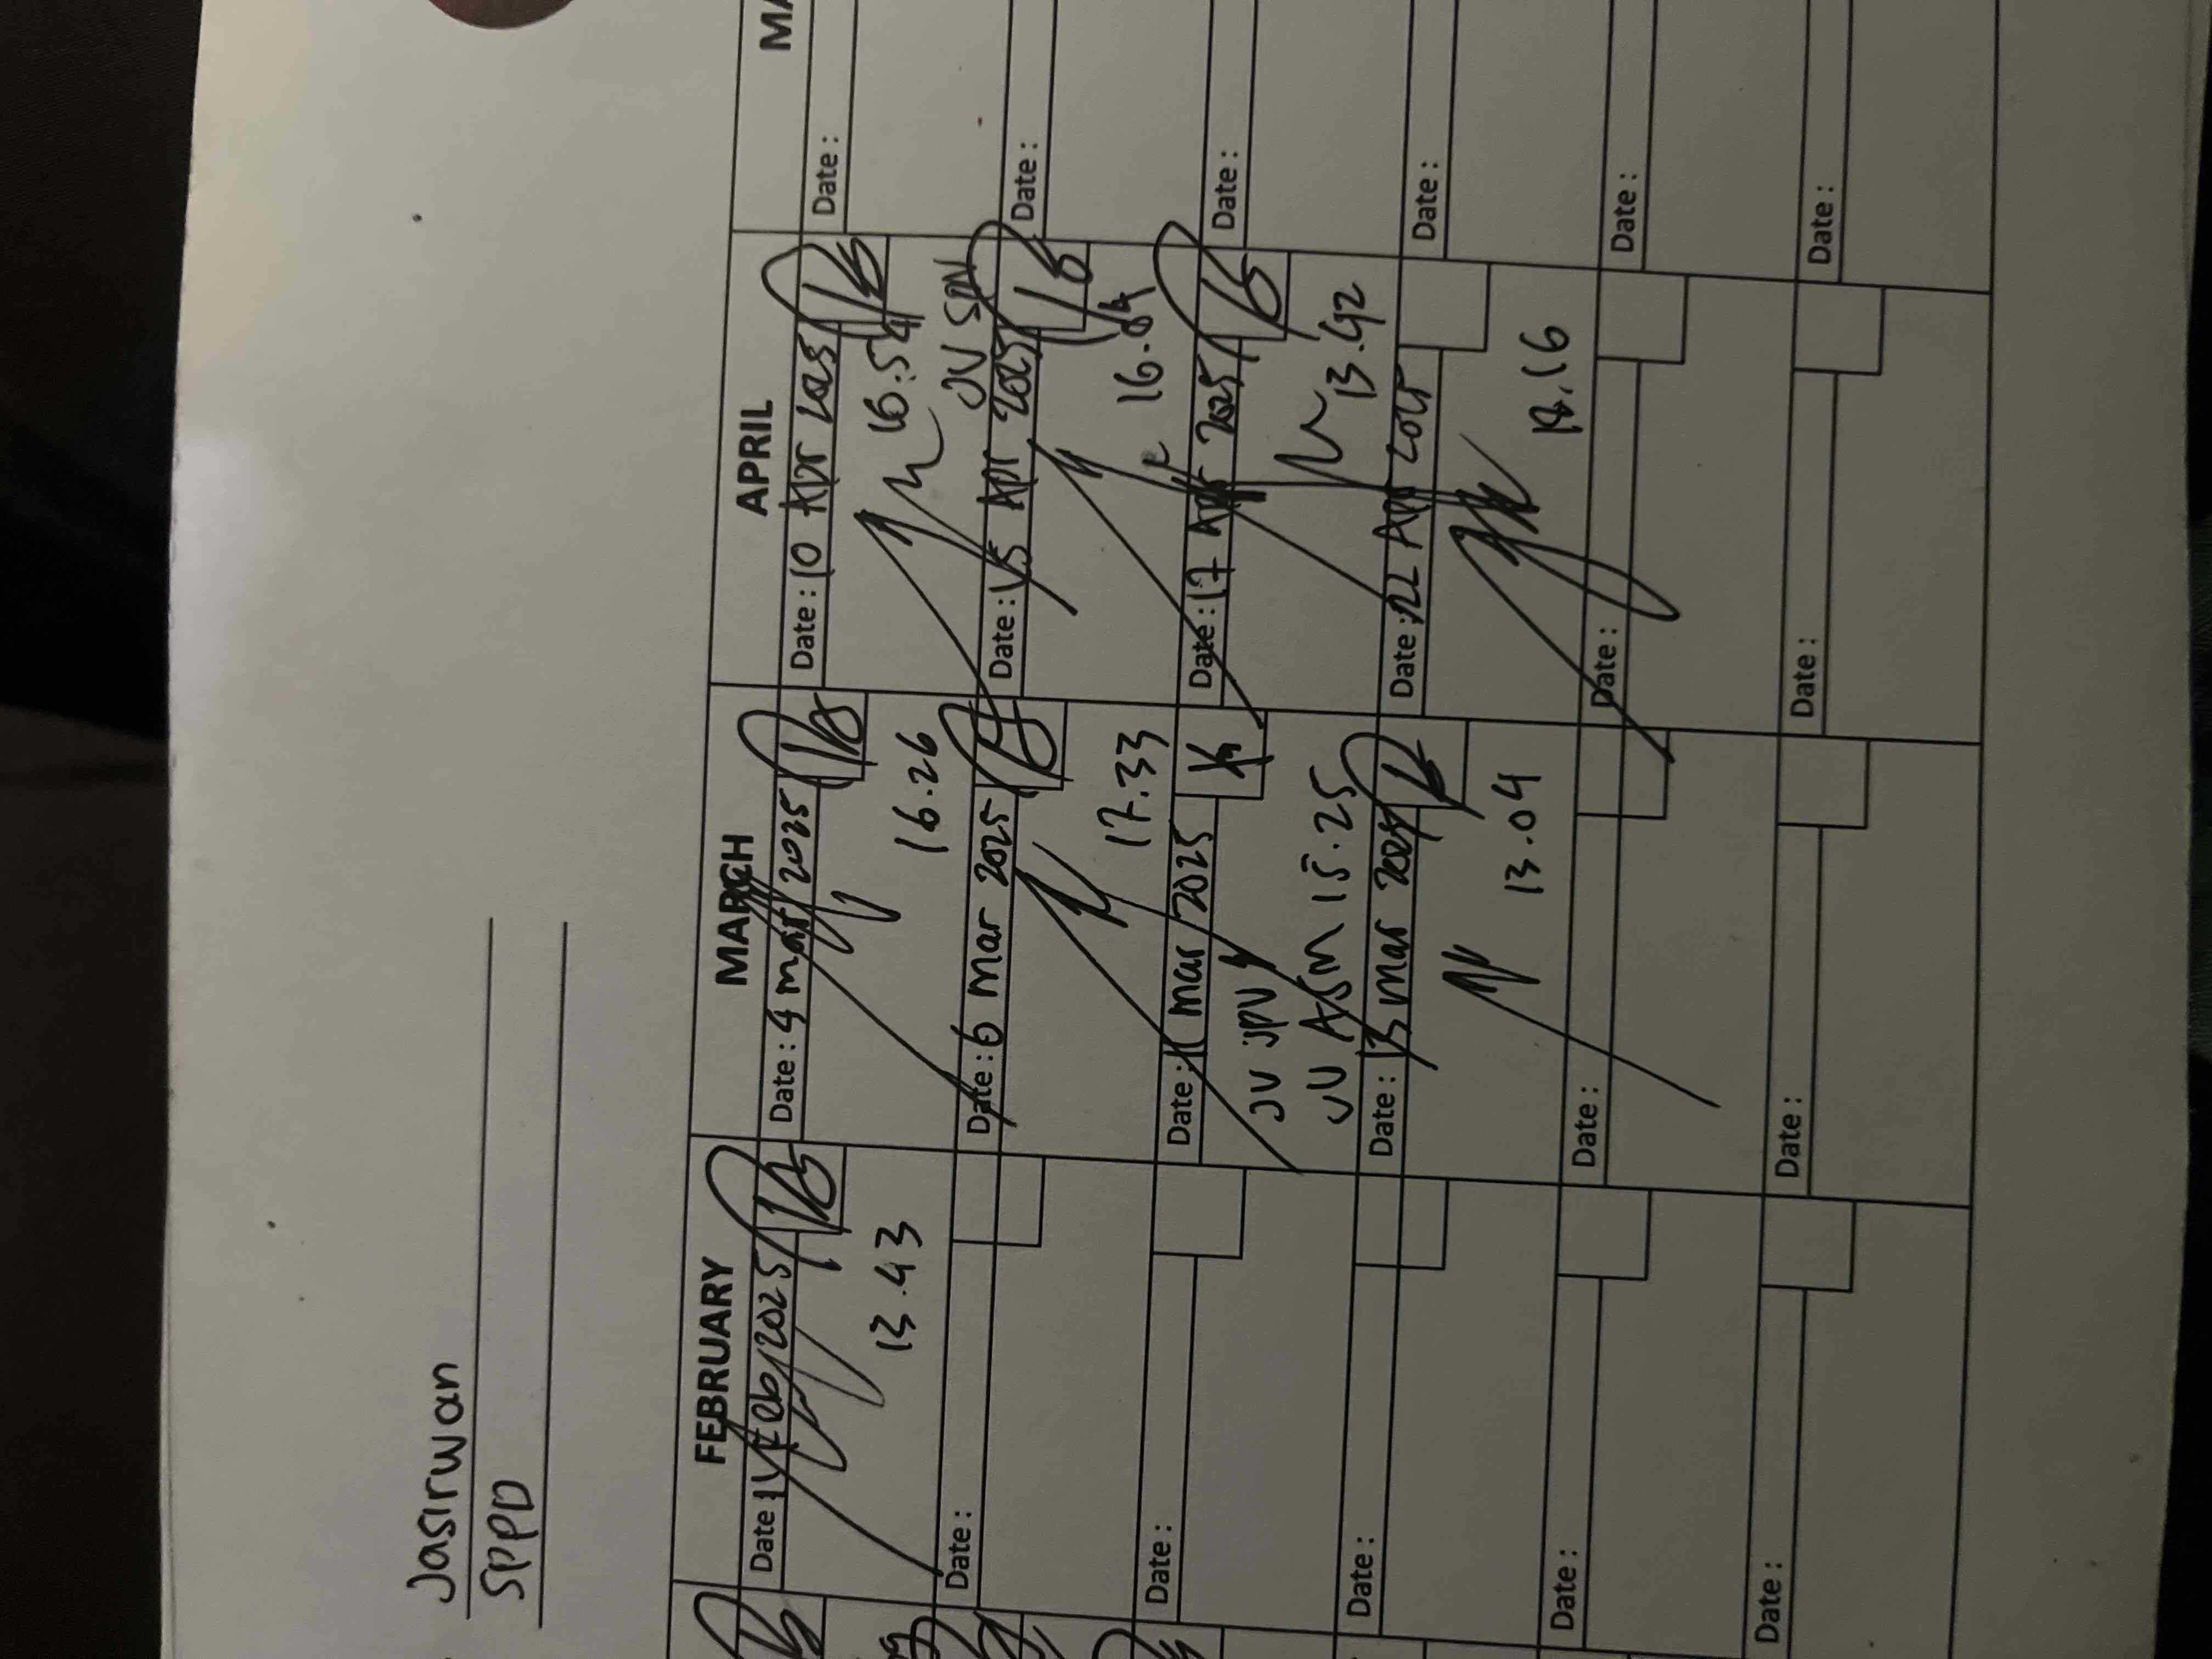 Jasirwan
SPPD
FEBRUARY MARCH APRIL
Date: Feb 2025
13.43
Date:
Date:
Date:
Date:
Date:
Date: 4 mar 2025
16.26
Date: 6 mar 2025
17.33
Date: 11 mar 2025
JV JPV
JV ASM 15.25
Date: 13 mar 2025
13.04
Date:
Date:
Date: 10 Apr 2025
16.54
JV SPN
Date: 15 Apr 2025
16.04
Date: 17 Apr 2025
13.42
Date: 22 Apr 2025
18.16
Date:
Date:
MA
Date:
Date:
Date:
Date:
Date:
Date: